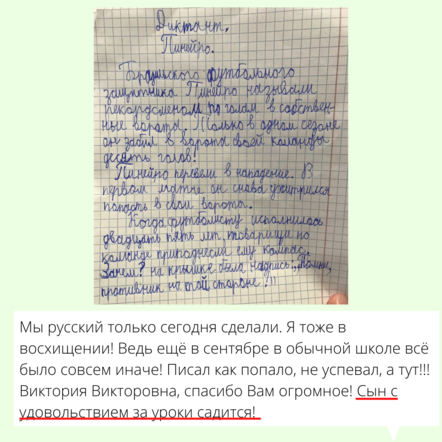 Диктант.
Пинейро.
Бразильского футбольного
защитника Пинейро называли
рекордсменом по голам в собствен-
ные ворота. Только в одном сезоне
он забил в ворота своей команды
десять голов!
Пинейро перевели в нападение. В
первом матче он снова ухитрился
попасть в свои ворота.
Когда футболисту исполнилось
двадцать пять лет, товарищи по
команде преподнесли ему компас.
Зачем? на крышке была надпись: „Помни,
противник на той стороне!"
Мы русский только сегодня сделали. Я тоже в
восхищении! Ведь ещё в сентябре в обычной школе всё
было совсем иначе! Писал как попало, не успевал, а тут!!!
Виктория Викторовна, спасибо Вам огромное! Сын с
удовольствием за уроки садится!